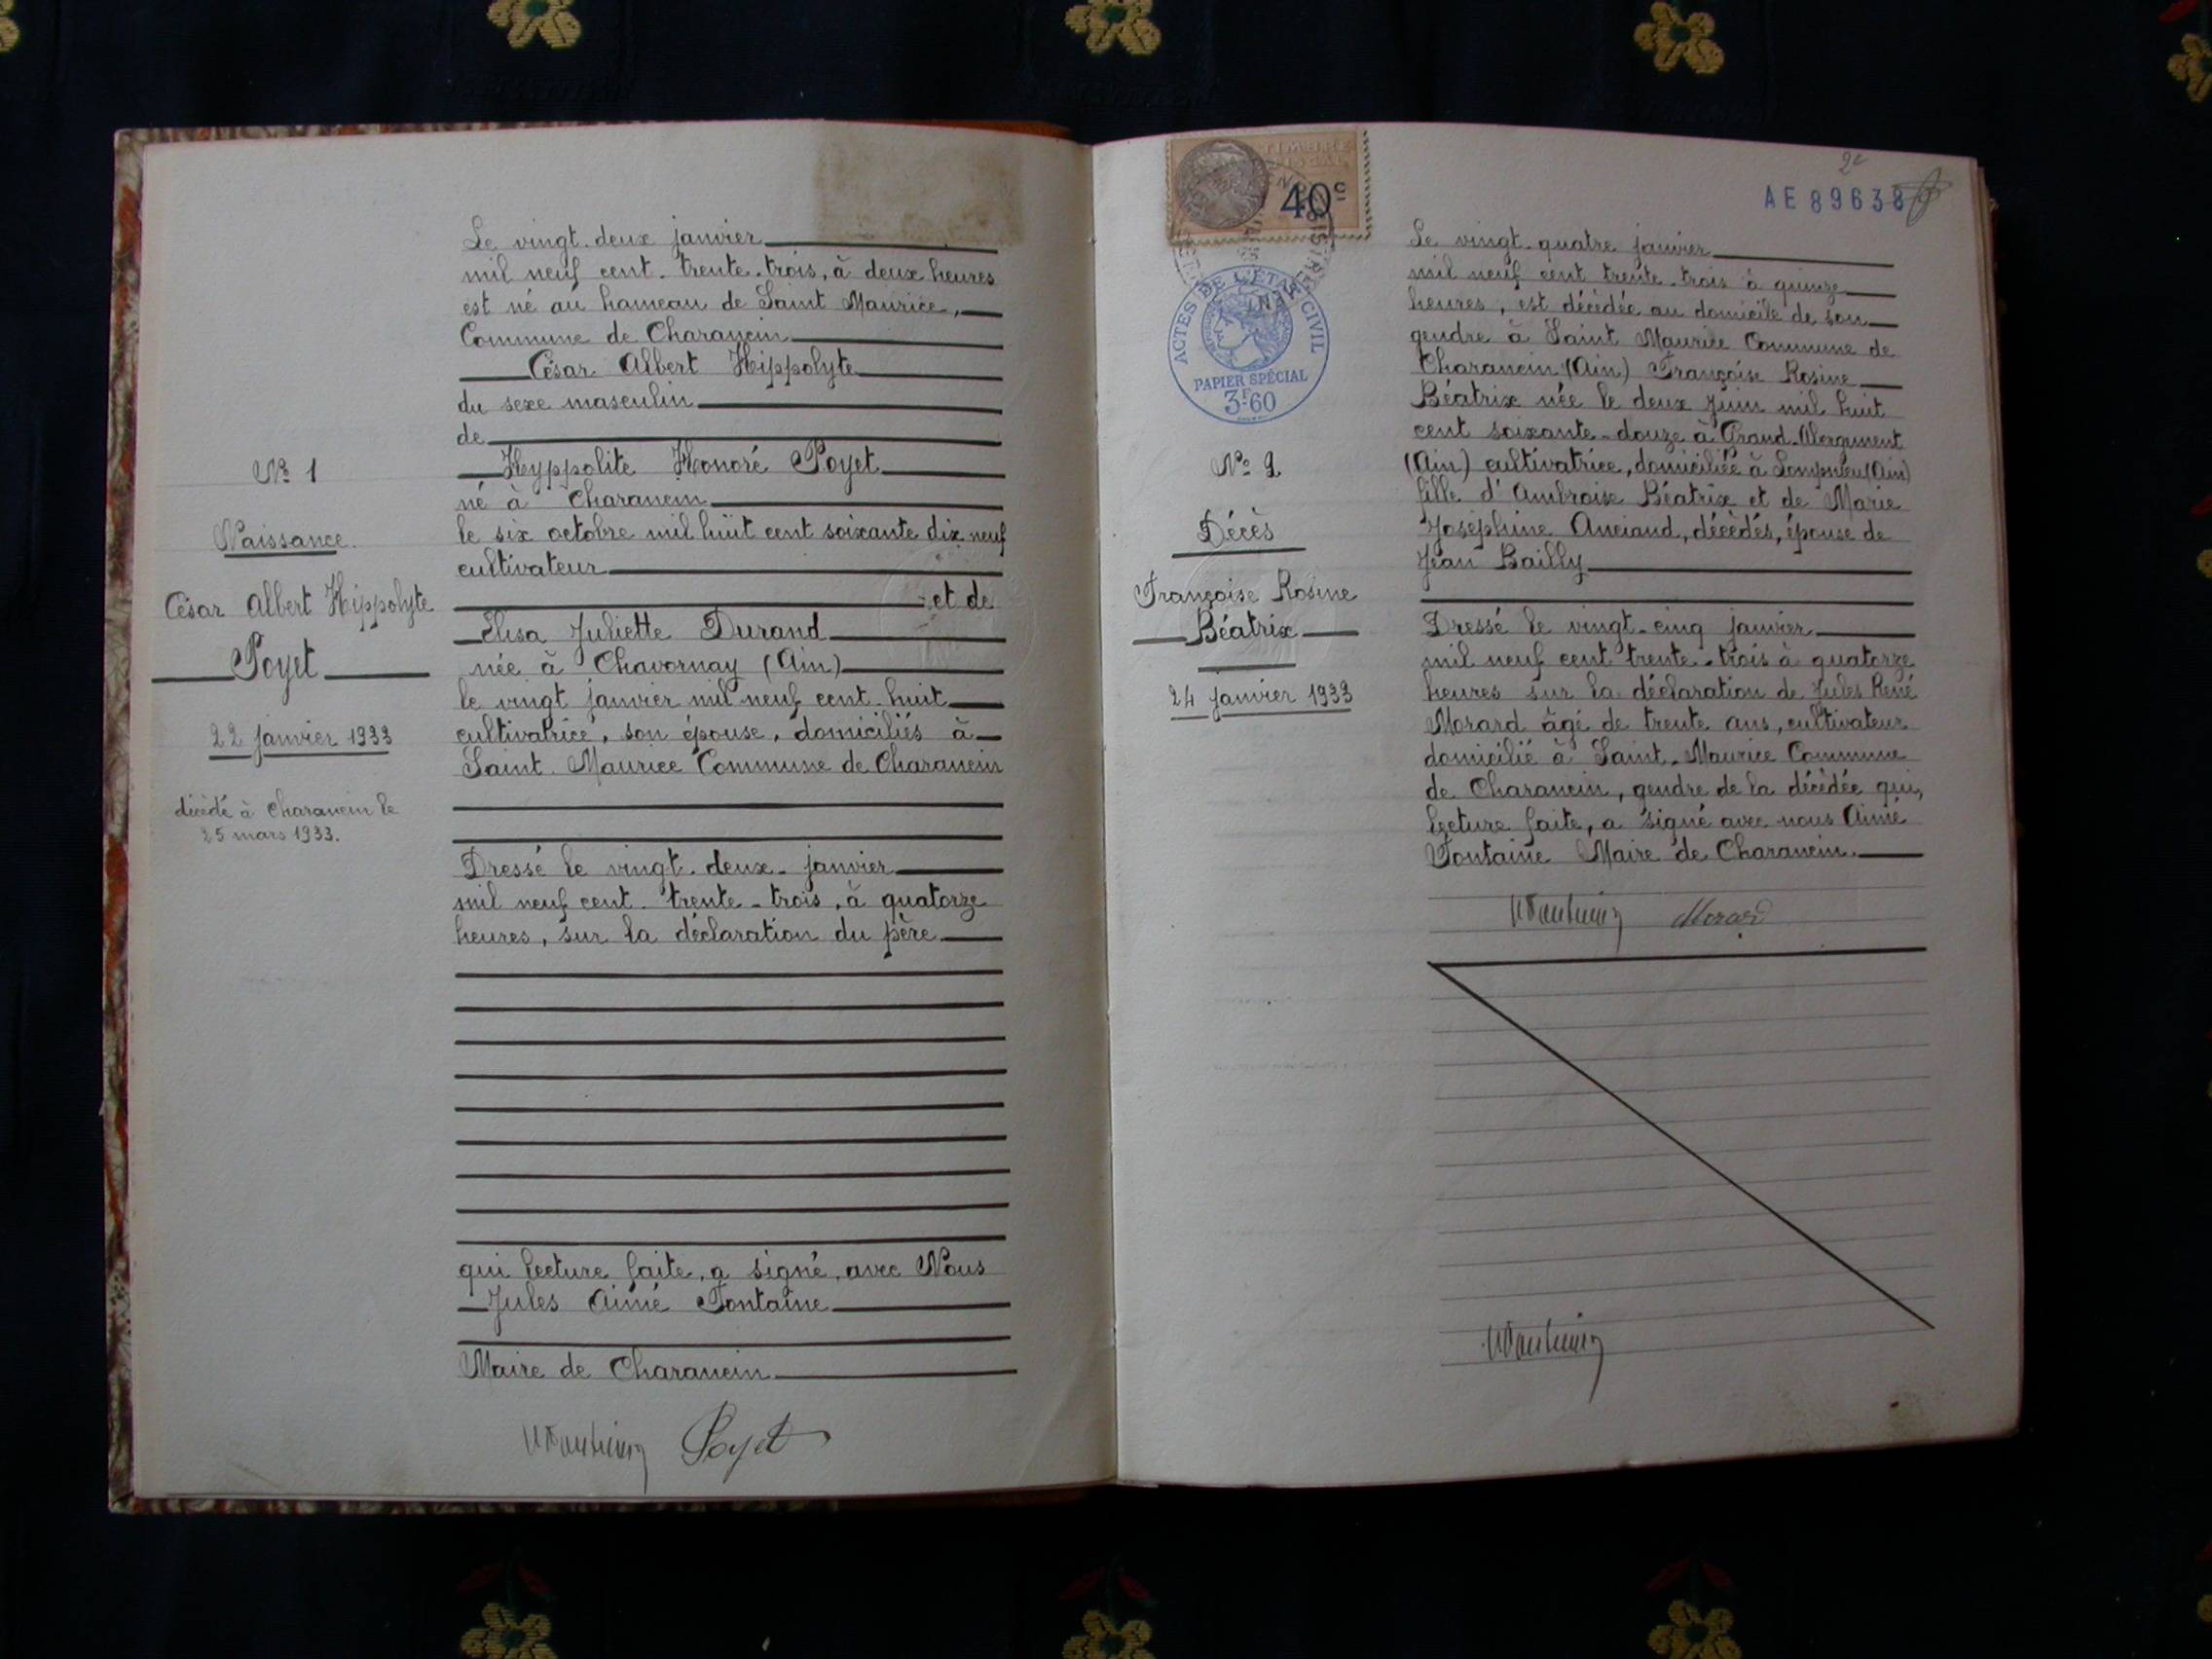 Le vingt-deux janvier
mil neuf cent trente-trois, à deux heures
est né au hameau de Saint Maurice,
Commune de Charancin
César Albert Hippolyte
du sexe masculin
de
Hyppolite Honoré Poyet
né à Charancin
le six octobre mil huit cent soixante dix neuf
cultivateur
et de
Elisa Juliette Durand
née à Chavornay (Ain)
le vingt janvier mil neuf cent huit
cultivatrice, son épouse, domiciliés à
Saint Maurice Commune de Charancin
Dressé le vingt-deux janvier
mil neuf cent trente-trois, à quatorze
heures, sur la déclaration du père
qui lecture faite, a signé, avec Nous
Jules Aimé Fontaine
Maire de Charancin
Poyet
No 1
Naissance
César Albert Hippolyte
Poyet
22 janvier 1933
décédé à Charancin le
25 mars 1933.
TIMBRE
FISCAL
40c
ACTES DE L'ÉTAT CIVIL
PAPIER SPÉCIAL
3F60
No 2
Décès
Françoise Rosine
Béatrix
24 janvier 1933
AE 89638
Le vingt-quatre janvier
mil neuf cent trente-trois à quinze
heures, est décédée au domicile de son
gendre à Saint Maurice Commune de
Charancin (Ain) Françoise Rosine
Béatrix née le deux Juin mil huit
cent soixante-douze à Grand-Abergement
(Ain) cultivatrice, domiciliée à Lompnieu (Ain)
fille d'Ambroise Béatrix et de Marie
Joséphine Anciand, décédés, épouse de
Jean Bailly
Dressé le vingt-cinq janvier
mil neuf cent trente-trois à quatorze
heures sur la déclaration de Jules René
Morard âgé de trente ans, cultivateur
domicilié à Saint-Maurice Commune
de Charancin, gendre de la décédée qui,
lecture faite, a signé avec nous Aimé
Fontaine Maire de Charancin.
Morard